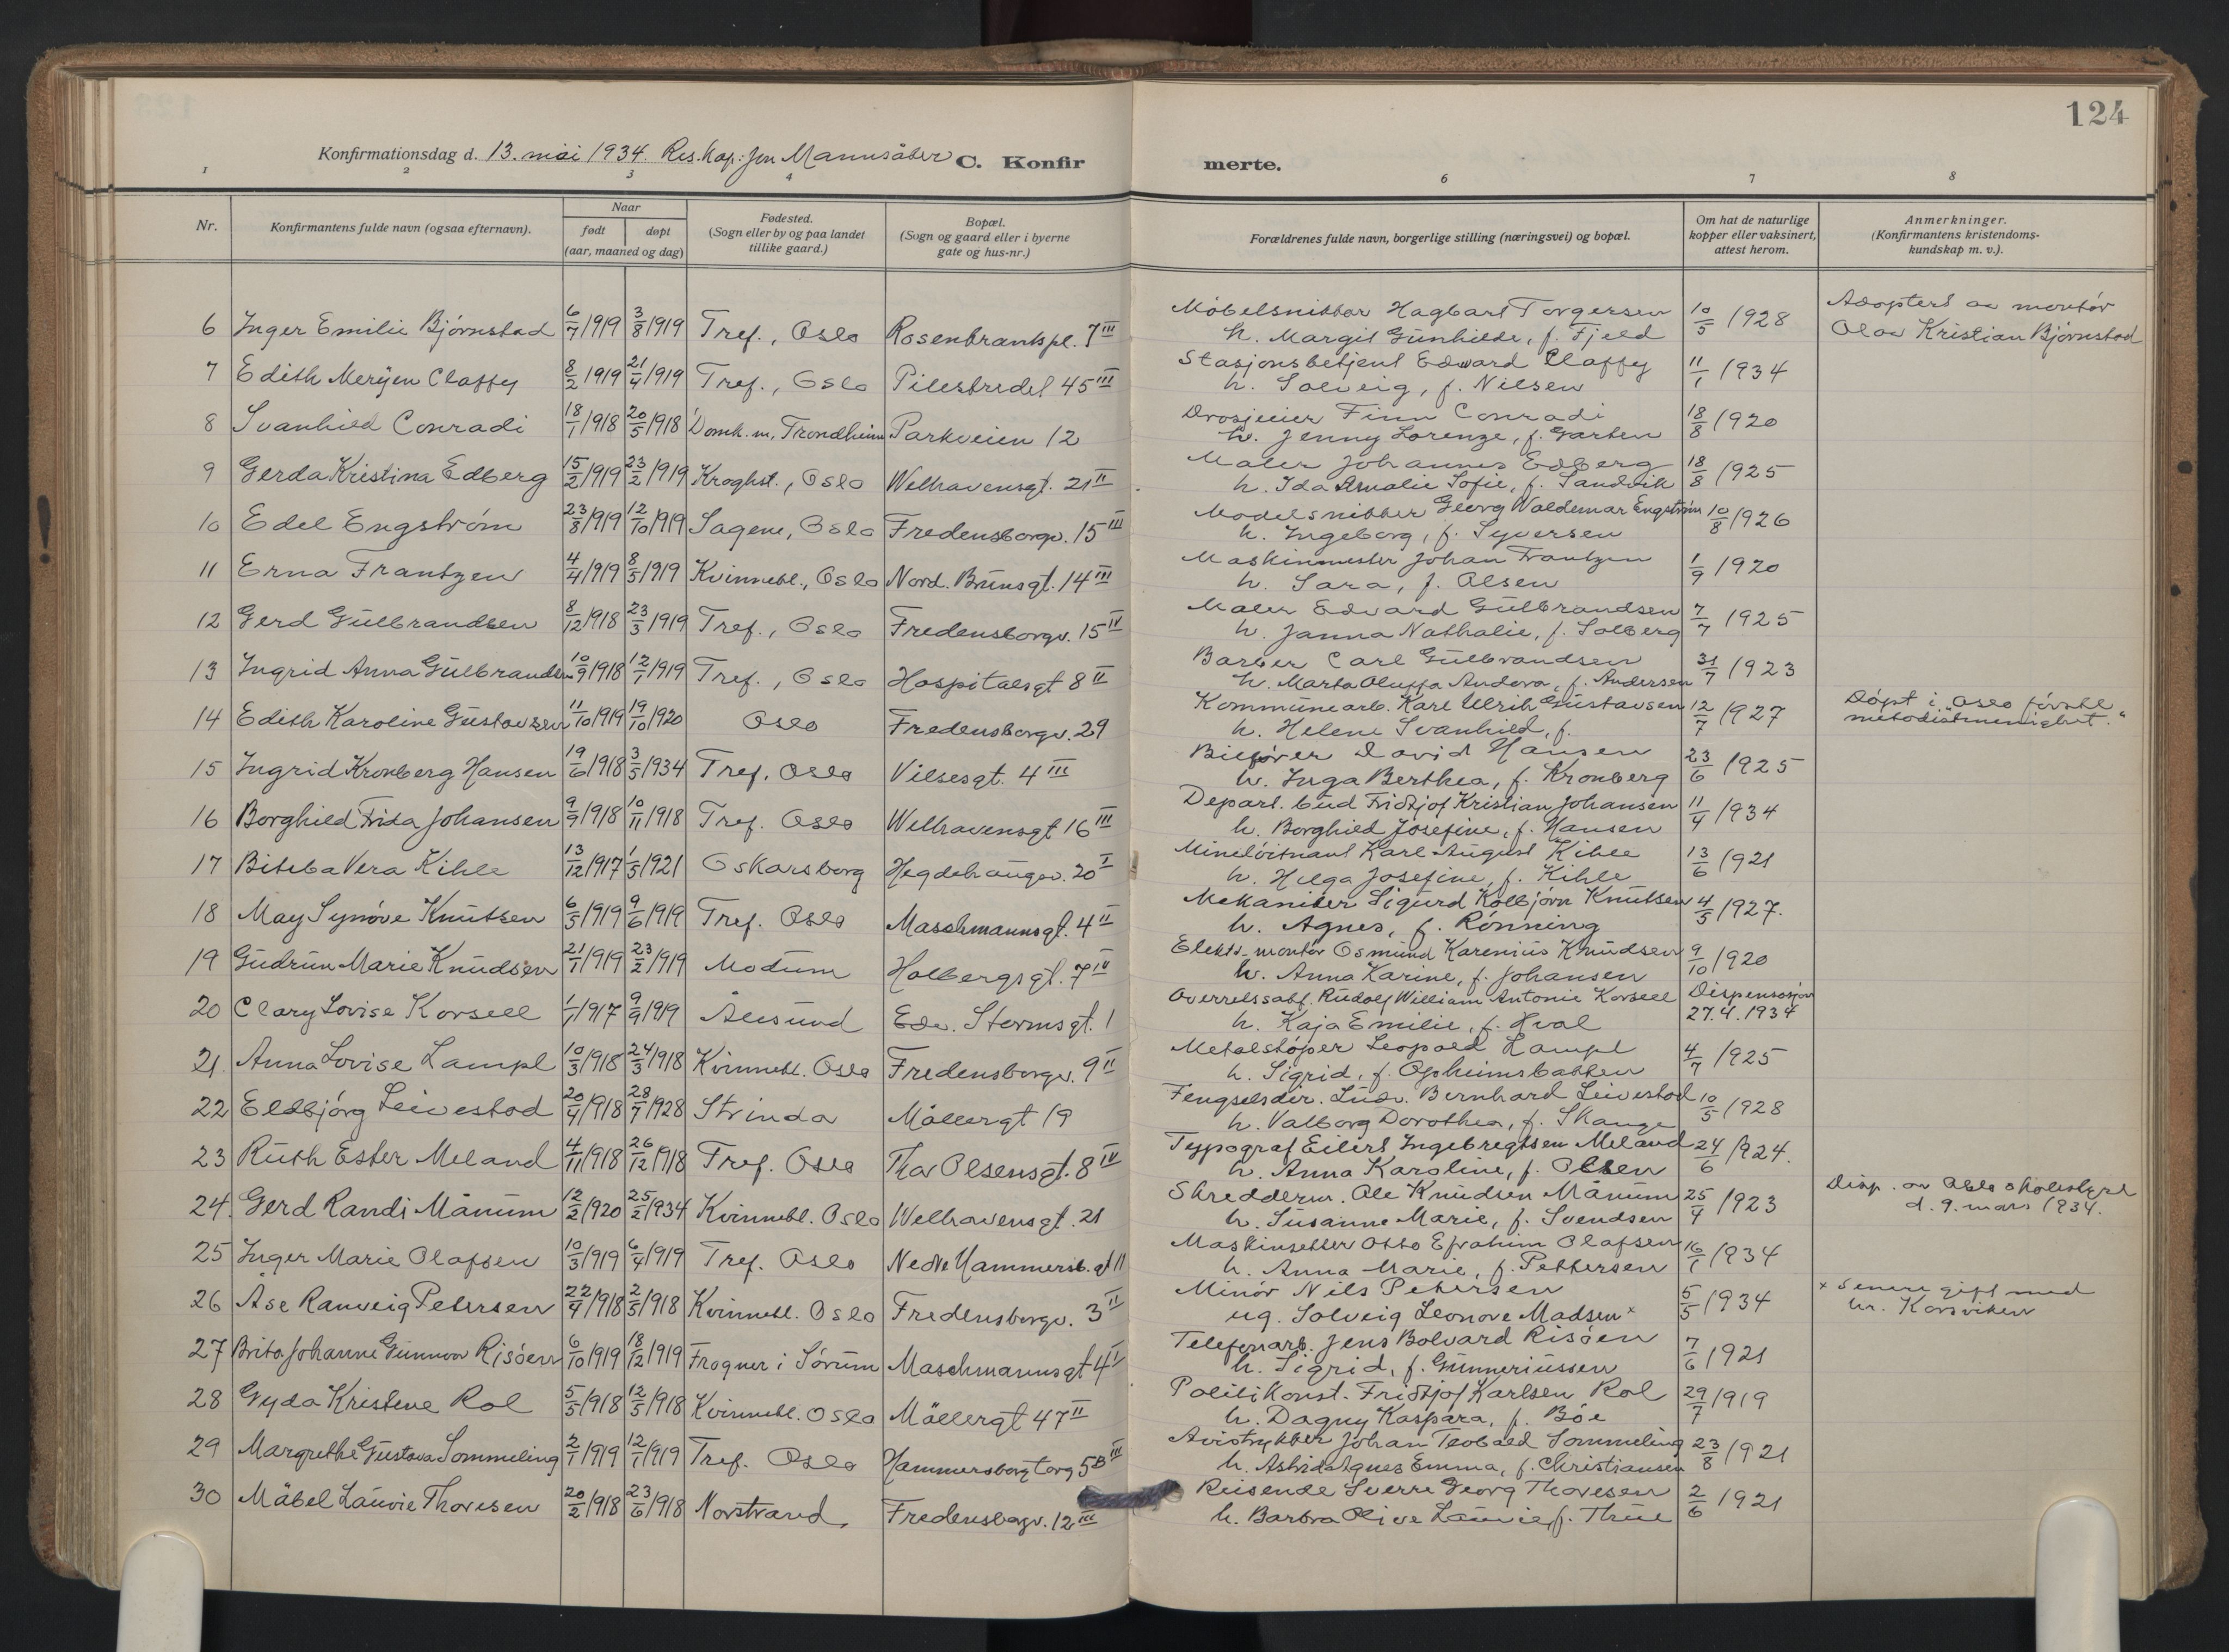 124
Konfirmationsdag d. 13. mai 1934. Res. kap. Jon Mannsåker C. Konfirmerte.
1 2 3 4 6 7 8
Nr.
Konfirmantens fulde navn (ogsaa efternavn).
Naar
født døpt
(aar, maaned og dag)
Fødested.
(Sogn eller by og paa landet
tillike gaard.)
Bopæl.
(Sogn og gaard eller i byerne
gate og hus-nr.)
Forældrenes fulde navn, borgerlige stilling (næringsvei) og bopæl.
Om hat de naturlige
kopper eller vaksinert,
attest herom.
Anmerkninger.
(Konfirmantens kristendoms-
kundskap m. v.).
6 Inger Emilie Bjørnstad 6/7 1919 3/8 1919 Tref., Oslo Rosenkrantspl. 7 III Møbelsnikker Hagbart Torgersen 10/5 1928 Adoptert av montør
h. Margit Gunhilde, f. Fjeld Olav Kristian Bjørnstad
7 Edith Merÿen Claffey 8/2 1919 21/4 1919 Tref., Oslo Pilestredet 45 III Stasjonsbetjent Edward Claffy 11/1 1934
h. Solveig, f. Nilsen
8 Svanhild Conradi 18/1 1918 20/5 1918 Domk. m, Trondheim Parkveien 12 Drosjeeier Finn Conradi 18/8 1920
h. Jenny Lorenze, f. Garten
9 Gerda Kristina Edberg 15/2 1919 23/2 1919 Kroghst., Oslo Welhavensgt. 21 II Maler Johannes Edberg 18/8 1925
h. Ida Amalie Sofie, f. Sandvik
10 Edel Engstrøm 23/8 1919 12/10 1919 Sagene, Oslo Fredensborgv. 15 III Modelsnikker Georg Waldemar Engstrøm 10/8 1926
h. Ingeborg, f. Syversen
11 Erna Frantzen 4/4 1919 8/5 1919 Kvinnekl., Oslo Nord. Brunsgt. 14 III Maskinmester Johan Frantzen 1/9 1920
h. Sara, f. Olsen
12 Gerd Gulbrandsen 8/12 1918 23/3 1919 Tref., Oslo Fredensborgv. 15 IV Maler Edvard Gulbrandsen 7/7 1925
h. Janna Nathalie, f. Solberg
13 Ingrid Anna Gulbrandsen 10/9 1918 12/1 1919 Tref., Oslo Hospitalsgt 8 II Barber Carl Gulbrandsen 31/7 1923
h. Marta Oluffa Andora, f. Andersen
14 Edith Karoline Gustavsen 11/10 1919 19/10 1920 Oslo Fredensborgv. 29 Kommunearb. Karl Ulrik Gustavsen 12/7 1927 Døpt i "Oslo første
h. Helene Svanhild, f. metodistmenighet."
15 Ingrid Kronberg Hansen 19/6 1918 3/5 1934 Tref. Oslo Vilsesgt. 4 III Bilfører David Hansen 23/6 1925
h. Inga Berthea, f. Kronberg
16 Borghild Frida Johansen 9/9 1918 10/11 1918 Tref. Oslo Welhavensgt 16 III Depart. bud Fridtjof Kristian Johansen 11/4 1934
h. Borghild Josefine, f. Hansen
17 Vera Kihle 13/12 1917 1/5 1921 Oskarsborg Hegdehaugsv. 20 I Mineløitnant Karl August Kihle 13/6 1921
h. Helga Josefine, f. Kihle
18 May Synøve Knutsen 6/5 1919 9/6 1919 Tref. Oslo Maschmannsgt. 4 II Mekaniker Sigurd Kolbjørn Knutsen 4/5 1927.
h. Agnes, f. Rønning
19 Gudrun Marie Knudsen 21/1 1919 23/2 1919 Modum Holbergsgt. 7 IV Elektr. montør Osmund Karenius Knudsen 9/10 1920
h. Anna Karine, f. Johansen
20 Clary Lovise Korsell 1/1 1917 9/9 1919 Ålesund Edv. Stormsgt. 1 Overrettssakf. Rudolf William Antonie Korsell Dispensasjon
h. Kaja Emilie, f. Hval 27.4.1934
21. Anna Lovise Lampl 10/3 1918 24/3 1918 Kvinnekl. Oslo Fredensborgv. 9 II Metalstøper Leopold Lampl 4/7 1925
h. Sigrid, f. Opheimsbakken
22 Eldbjørg Leivestad 20/4 1918 28/7 1928 Strinda Møllergt 19 Fengselsdir. Ludv. Bernhard Leivestad 10/5 1928
h. Valborg Dorothea, f. Skauge
23 Ruth Ester Meland 4/11 1918 26/12 1918 Tref. Oslo Thor Olsensgt. 8 IV Typograf Eilert Ingebregtsen Meland 24/6 1924.
h. Anna Karoline, f. Olsen
24. Gerd Randi Månum 12/2 1920 25/2 1934 Kvinnekl. Oslo Welhavensgt. 21 Skredderm. Ole Knudsen Månum 25/4 1923 Disp. av Oslo skolestyre
h. Susanne Marie, f. Svendsen d. 9. mars 1934.
25 Inger Marie Olafsen 10/3 1919 6/4 1919 Tref. Oslo Nedre Hammersb. gt 11 Maskinsetter Otto Efrahim Olafsen 16/1 1934
h. Anna Marie, f. Pettersen
26 Åse Ranveig Petersen 22/4 1918 2/5 1918 Kvinnekl. Oslo Fredensborgv. 3 II Minør Nils Petersen 5/5 1934 x Senere gift med
ug. Solveig Leonore Madsen x hr. Korsviken
27 Brita Johanne Gunnvor Risöen 6/10 1919 18/12 1919 Frogner i Sørum Maschmannsgt 4 IV Telefonarb. Jens Bolvard Risöen 7/6 1921
h. Sigrid, f. Gunneriussen
28 Gyda Kristine Rol 5/5 1918 12/5 1918 Kvinnekl. Oslo Møllergt 47 II Politikonst. Fridtjof Karlsen Rol 29/7 1919
h. Dagny Kaspara, f. Bøe
29 Margrethe Gustava Sommeling 2/1 1919 12/1 1919 Tref. Oslo Hammersborg torg 5B III Avistrykker Johan Teobald Sommeling 23/8 1921
h. Astrid Agnes Emma, f. Christiansen
30 Mäbel Lauvie Thoresen 20/2 1918 23/6 1918 Norstrand. Fredensborgv. 12 III Reisende Sverre Georg Thoresen 2/6 1921
h. Barbra Olive Lauvie, f. Thue